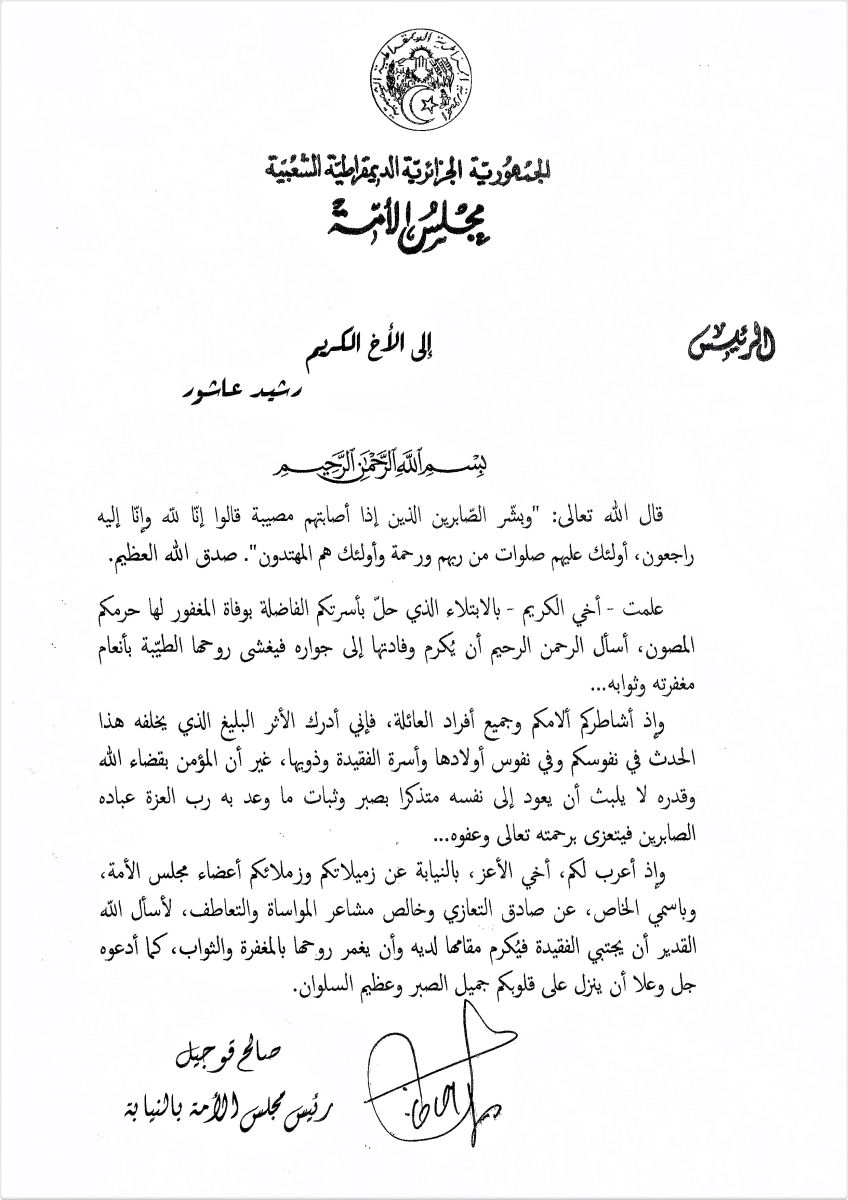 الجمهورية الجزائرية الديمقراطية الشعبية
الجمهوريّة الجزائريّة الديمقراطيّة الشّعبيّة
مجلس الأمّة
الرئيس
إلى الأخ الكريم
رشيد عاشور
بِسْمِ اللَّهِ الرَّحْمَٰنِ الرَّحِيمِ
قال الله تعالى: "وبشّر الصّابرين الذين إذا أصابتهم مصيبة قالوا إنّا لله وإنّا إليه
راجعون، أولئك عليهم صلوات من ربهم ورحمة وأولئك هم المهتدون". صدق الله العظيم.
علمت - أخي الكريم - بالابتلاء الذي حلّ بأسرتكم الفاضلة بوفاة المغفور لها حرمكم
المصون، أسأل الرحمن الرحيم أن يُكرم وفادتها إلى جواره فيغشى روحها الطيّبة بأنعام
مغفرته وثوابه...
وإذ أشاطركم ألامكم وجميع أفراد العائلة، فإني أدرك الأثر البليغ الذي يخلفه هذا
الحدث في نفوسكم وفي نفوس أولادها وأسرة الفقيدة وذويها، غير أن المؤمن بقضاء الله
وقدره لا يلبث أن يعود إلى نفسه متذكرا بصبر وثبات ما وعد به رب العزة عباده
الصابرين فيتعزى برحمته تعالى وعفوه...
وإذ أعرب لكم، أخي الأعز، بالنيابة عن زميلاتكم وزملائكم أعضاء مجلس الأمة،
وباسمي الخاص، عن صادق التعازي وخالص مشاعر المواساة والتعاطف، لأسأل الله
القدير أن يجتبي الفقيدة فيُكرم مقامها لديه وأن يغمر روحها بالمغفرة والثواب، كما أدعوه
جل وعلا أن ينزل على قلوبكم جميل الصبر وعظيم السلوان.
صالح قوجيل
رئيس مجلس الأمة بالنيابة